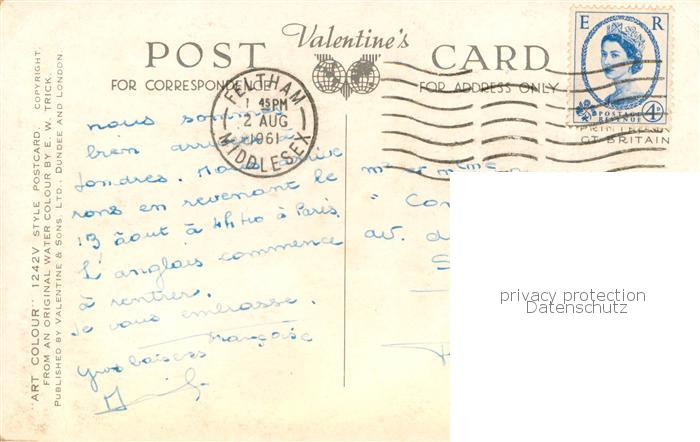 POST Valentine's CARD
FOR CORRESPONDENCE
FOR ADDRESS ONLY
E R
POSTAGE
REVENUE
4D
GT BRITAIN
FELTHAM
1 45 PM
2 AUG
1961
MIDDLESEX
"ART COLOUR" 1242V STYLE POSTCARD. COPYRIGHT.
FROM AN ORIGINAL WATER COLOUR BY E. W. TRICK.
PUBLISHED BY VALENTINE & SONS. LTD., DUNDEE AND LONDON
nous sommes
bien
Londres. Nous
rons en revenant le
13 août à 4h40 à Paris.
L'anglais commence
à rentrer.
Je vous embrasse.
Françoise
Gros baisers
av. d
privacy protection
Datenschutz